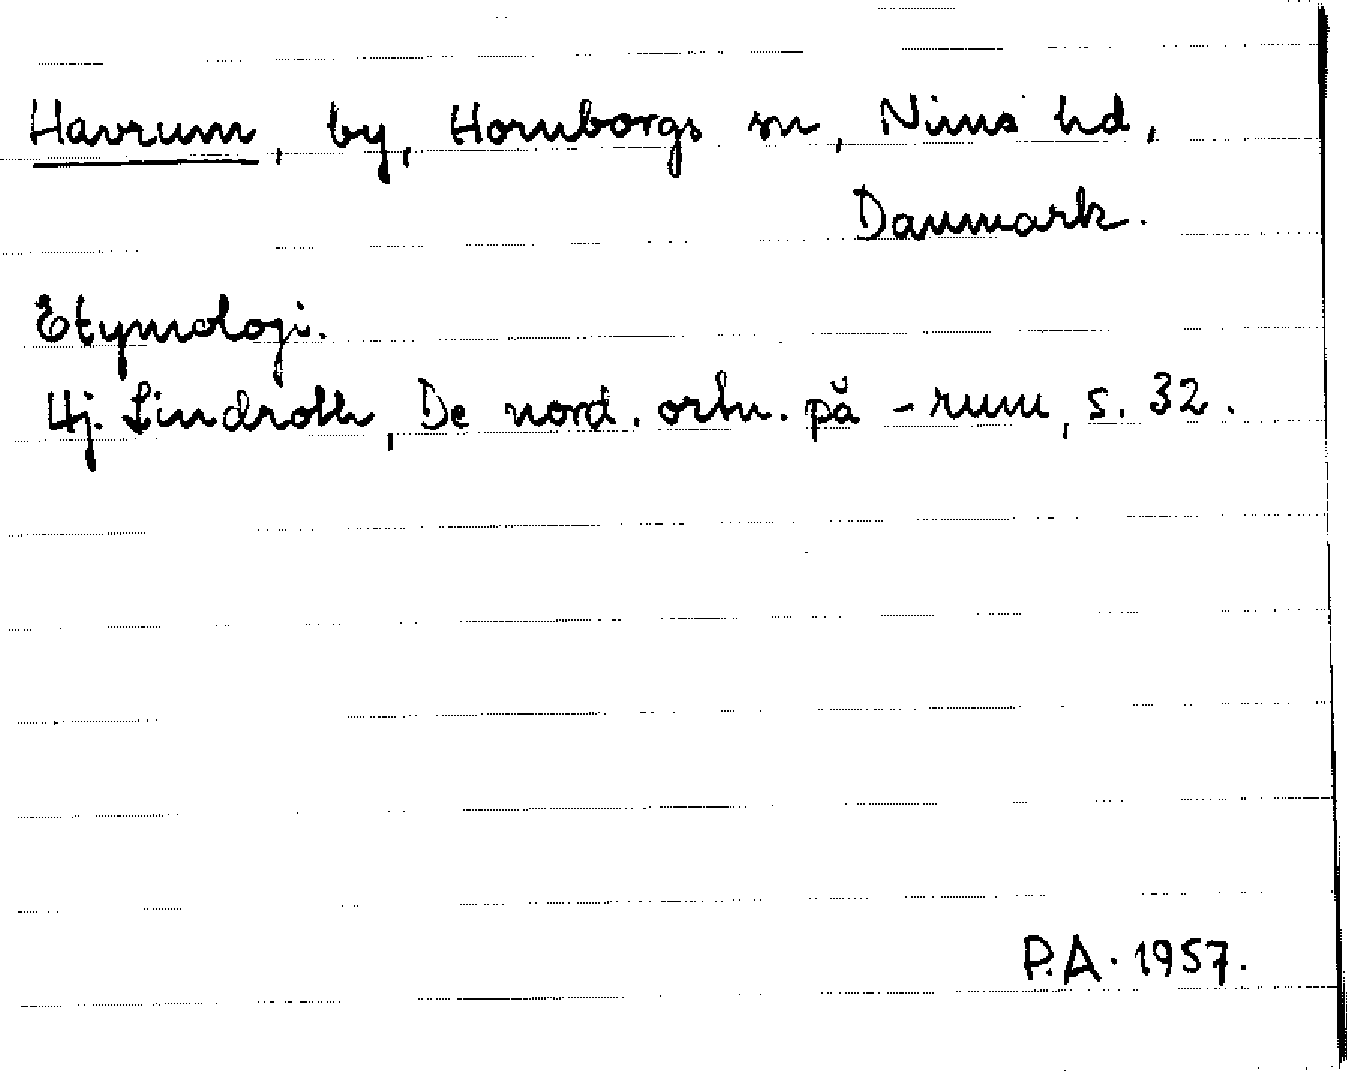 Havrum, by, Hornborgs sn, Nims hd,
Danmark.
Etymologi.
Hj. Lindroth, De nord. ortn. på -rum, s. 32.
P.A. 1957.